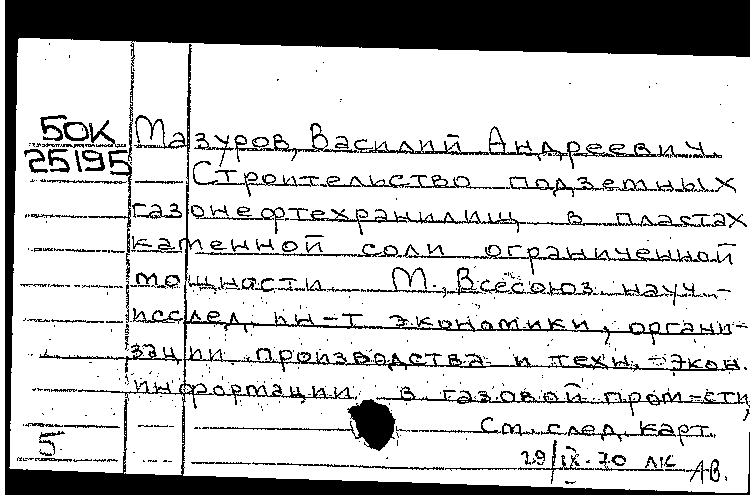 БОК Мазуров, Василий Андреевич.
25195 Строительство подземных
газонефтехранилищ в пластах
каменной соли ограниченной
мощности М., Всесоюз. науч.-
исслед. ин-т экономики, органи-
зации производства и техн.-экон.
информации в газовой пром-сти,
См. след. карт.
5 29/IX-70 лк АВ.